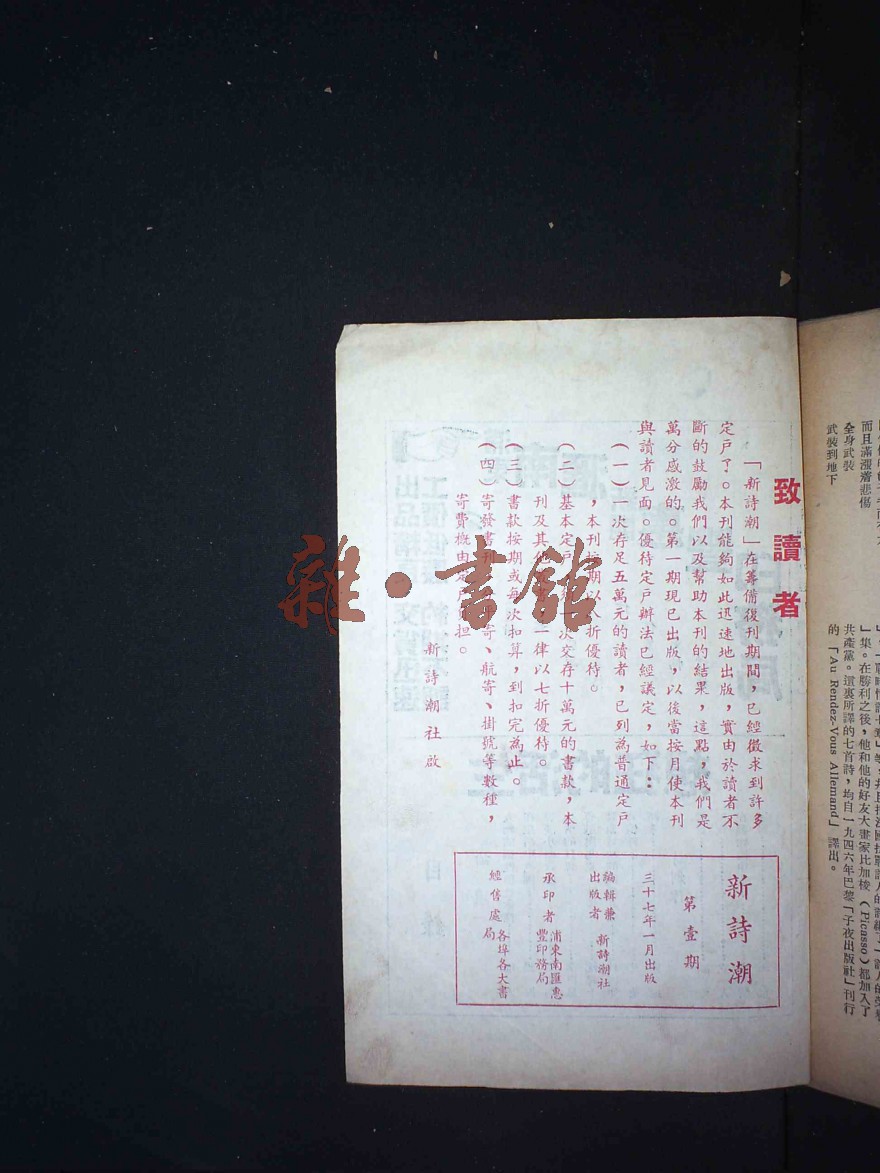 武裝到地下
全身武裝
而且滿漲着悲傷
」集。在勝利之後，他和他的好友大畫家比加梭（Picasso）都加入了
共產黨。這裏所譯的七首詩，均自一九四六年巴黎「子夜出版社」刊行
的「Au Rendez-Vous Allemand」譯出。
致讀者
「新詩潮」在籌備復刊期間，已經徵求到許多
定戶了。本刊能夠如此迅速地出版，實由於讀者不
斷的鼓勵我們以及幫助本刊的結果，這點，我們是
萬分感激的。第一期現已出版，以後當按月使本刊
與讀者見面。優待定戶辦法已經議定，如下：
（一）一次存足五萬元的讀者，已列為普通定戶
，本刊按期以折優待。
（二）基本定戶一次交存十萬元的書款，本
刊及其他一律以七折優待。
（三）書款按期或每次扣算，到扣完為止。
（四）寄發書刊寄、航寄、掛號等數種，
寄費概由定戶担。
新詩潮社啟
新詩潮
第壹期
三十七年一月出版
編輯兼出版者 新詩潮社
承印者 浦東南匯惠豐印務局
經售處 各埠各大書局
雜·書館